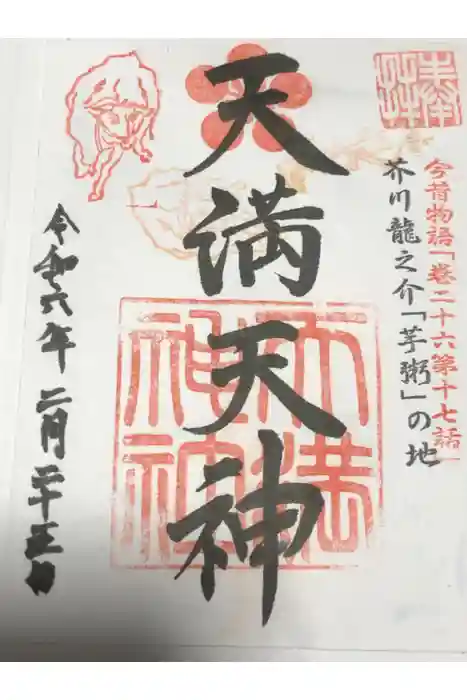 奉拝
今昔物語「巻二十六第十七話」
芥川龍之介「芋粥」の地
天満天神
天満
神社
令和六年 二月 二十五日